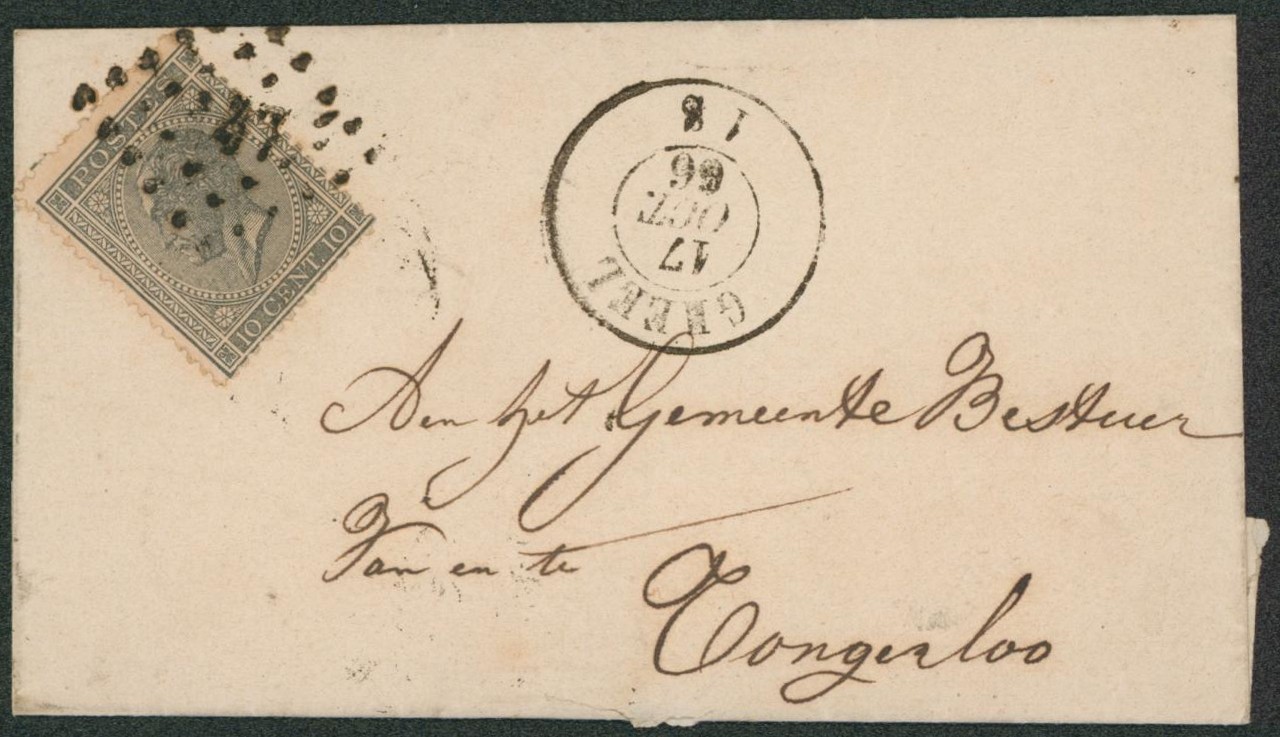 POSTES
10 CENT. 10
GHEEL
17
OCT.
66
Aen het Gemeente Bestuer
Van en te
Tongerloo